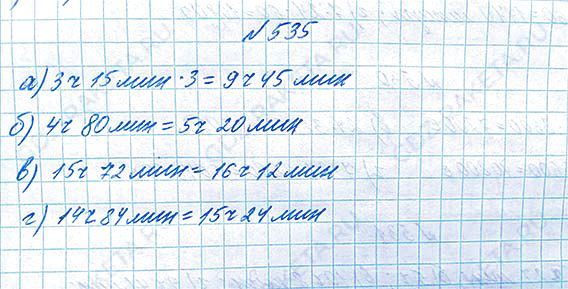 №535
а) 3 ч 15 мин · 3 = 9 ч 45 мин
б) 4 ч 80 мин = 5 ч 20 мин
в) 15 ч 72 мин = 16 ч 12 мин
г) 14 ч 84 мин = 15 ч 24 мин